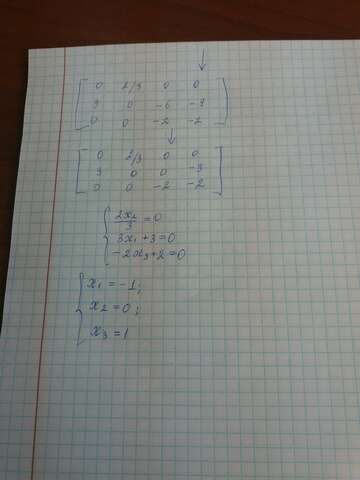 0 2/3 0 0
3 0 -6 -9
0 0 -2 -2
0 2/3 0 0
3 0 0 -3
0 0 -2 -2
2x₂/3 = 0
3x₁ + 3 = 0
-2x₃ + 2 = 0
x₁ = -1;
x₂ = 0;
x₃ = 1